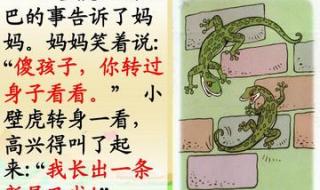 巴的事告诉了妈
妈。妈妈笑着说:
“傻孩子，你转过
身子看看。” 小
壁虎转身一看，
高兴得叫了起
来:“我长出一条